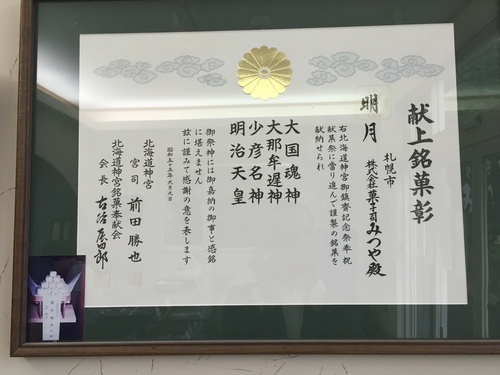 献上銘菓彰
札幌市
株式会社菓子司みつや殿
明月
右北海道神宮御鎮齋記念祭奉祝
献菓祭に當り進んで謹製の銘菓を
献納せられ
大国魂神
大那牟遅神
少彦名神
明治天皇
御祭神には御嘉納の御事と感銘
に堪えません
茲に謹みて感謝の意を表します
昭和五十五年六月九日
北海道神宮
宮司 前田勝也
北海道神宮銘菓奉献会
会長